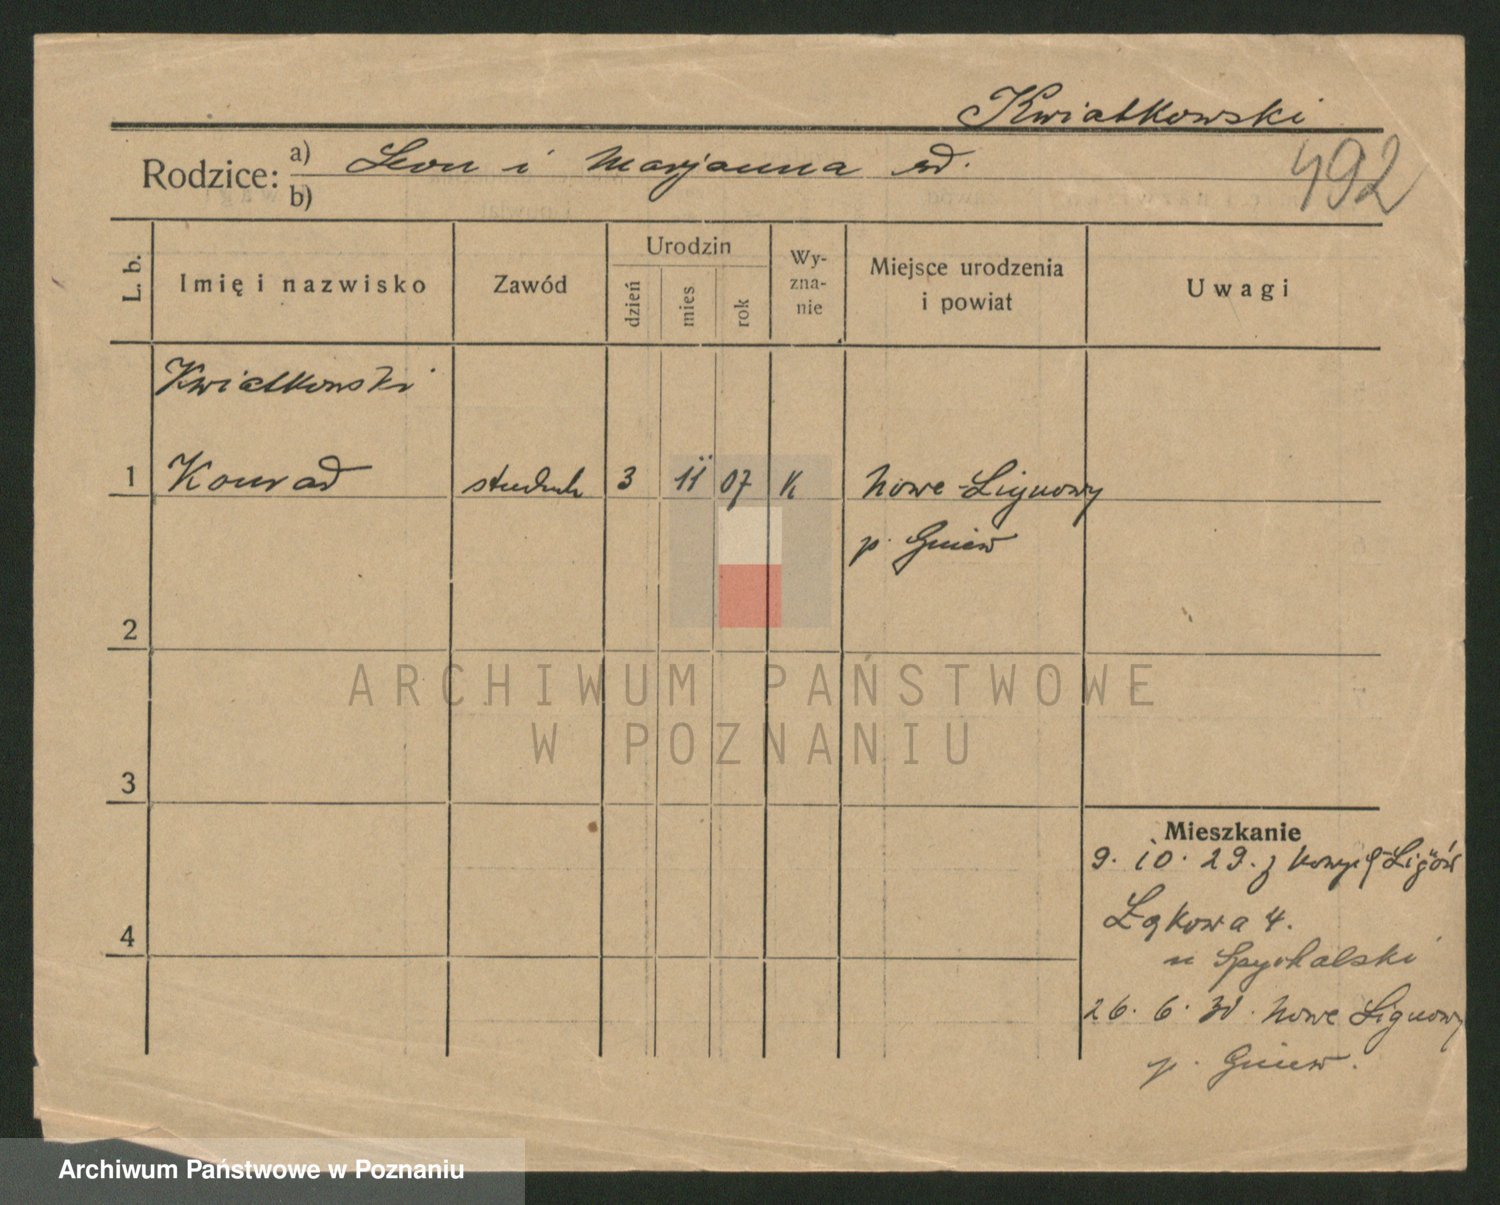 Kwiatkowski
492
Rodzice: a) Leon i Marjanna
b)
L. b.
Imię i nazwisko
Zawód
Urodzin
dzień
mies
rok
Wy-
zna-
nie
Miejsce urodzenia
i powiat
Uwagi
Kwiatkowski
1 Konrad student 3 11 07 K Nowe-Lignowy
p. Gniew
2
3
4
Mieszkanie
9. 10. 29. z
Łąkowa 4.
u Spychalski
26. 6. 30. Nowe Lignowy
p. Gniew.
ARCHIWUM PAŃSTWOWE
W POZNANIU
Archiwum Państwowe w Poznaniu